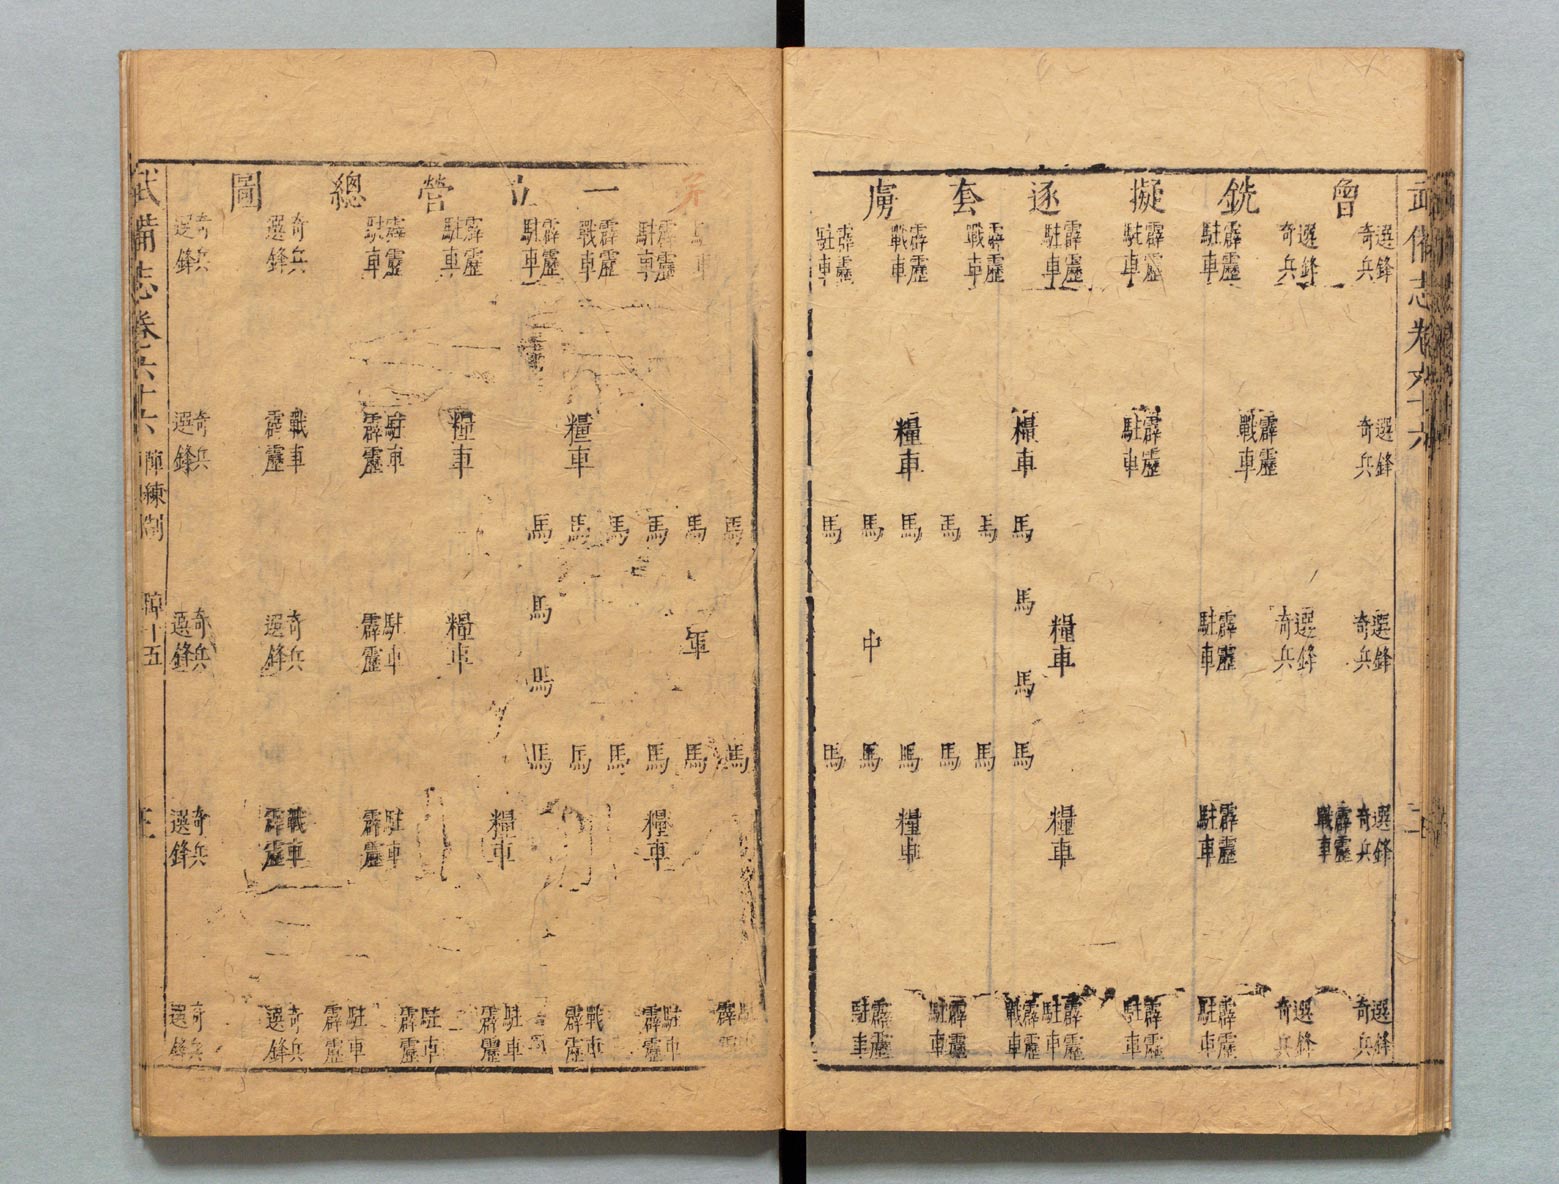 武備志卷六十六
曾銑擬逐套虜
選鋒奇兵 選鋒奇兵 霹靂駐車 霹靂駐車 霹靂駐車 霹靂戰車 霹靂戰車 霹靂駐車
選鋒奇兵 霹靂戰車 霹靂駐車 糧車 糧車
馬 馬 馬 馬 馬 馬
馬
選鋒奇兵 選鋒奇兵 霹靂駐車 糧車 中
馬
馬 馬 馬 馬 馬 馬
選鋒奇兵 霹靂戰車 霹靂駐車 糧車 糧車
選鋒奇兵 選鋒奇兵 霹靂駐車 霹靂駐車 霹靂駐車 霹靂戰車 霹靂駐車 霹靂駐車
一立營總圖
霹靂駐車 霹靂戰車 霹靂駐車 霹靂駐車 霹靂駐車 奇兵選鋒 奇兵選鋒
糧車 糧車 駐車霹靂 戰車霹靂 奇兵選鋒
馬 馬 馬 馬 馬 馬
馬
軍 糧車 駐車霹靂 奇兵選鋒 奇兵選鋒
馬
馬 馬 馬 馬 馬 馬
糧車 糧車 駐車霹靂 戰車霹靂 奇兵選鋒
駐車霹靂 戰車霹靂 駐車霹靂 駐車霹靂 駐車霹靂 奇兵選鋒 奇兵選鋒
武備志卷六十六 陣練制 陣十五